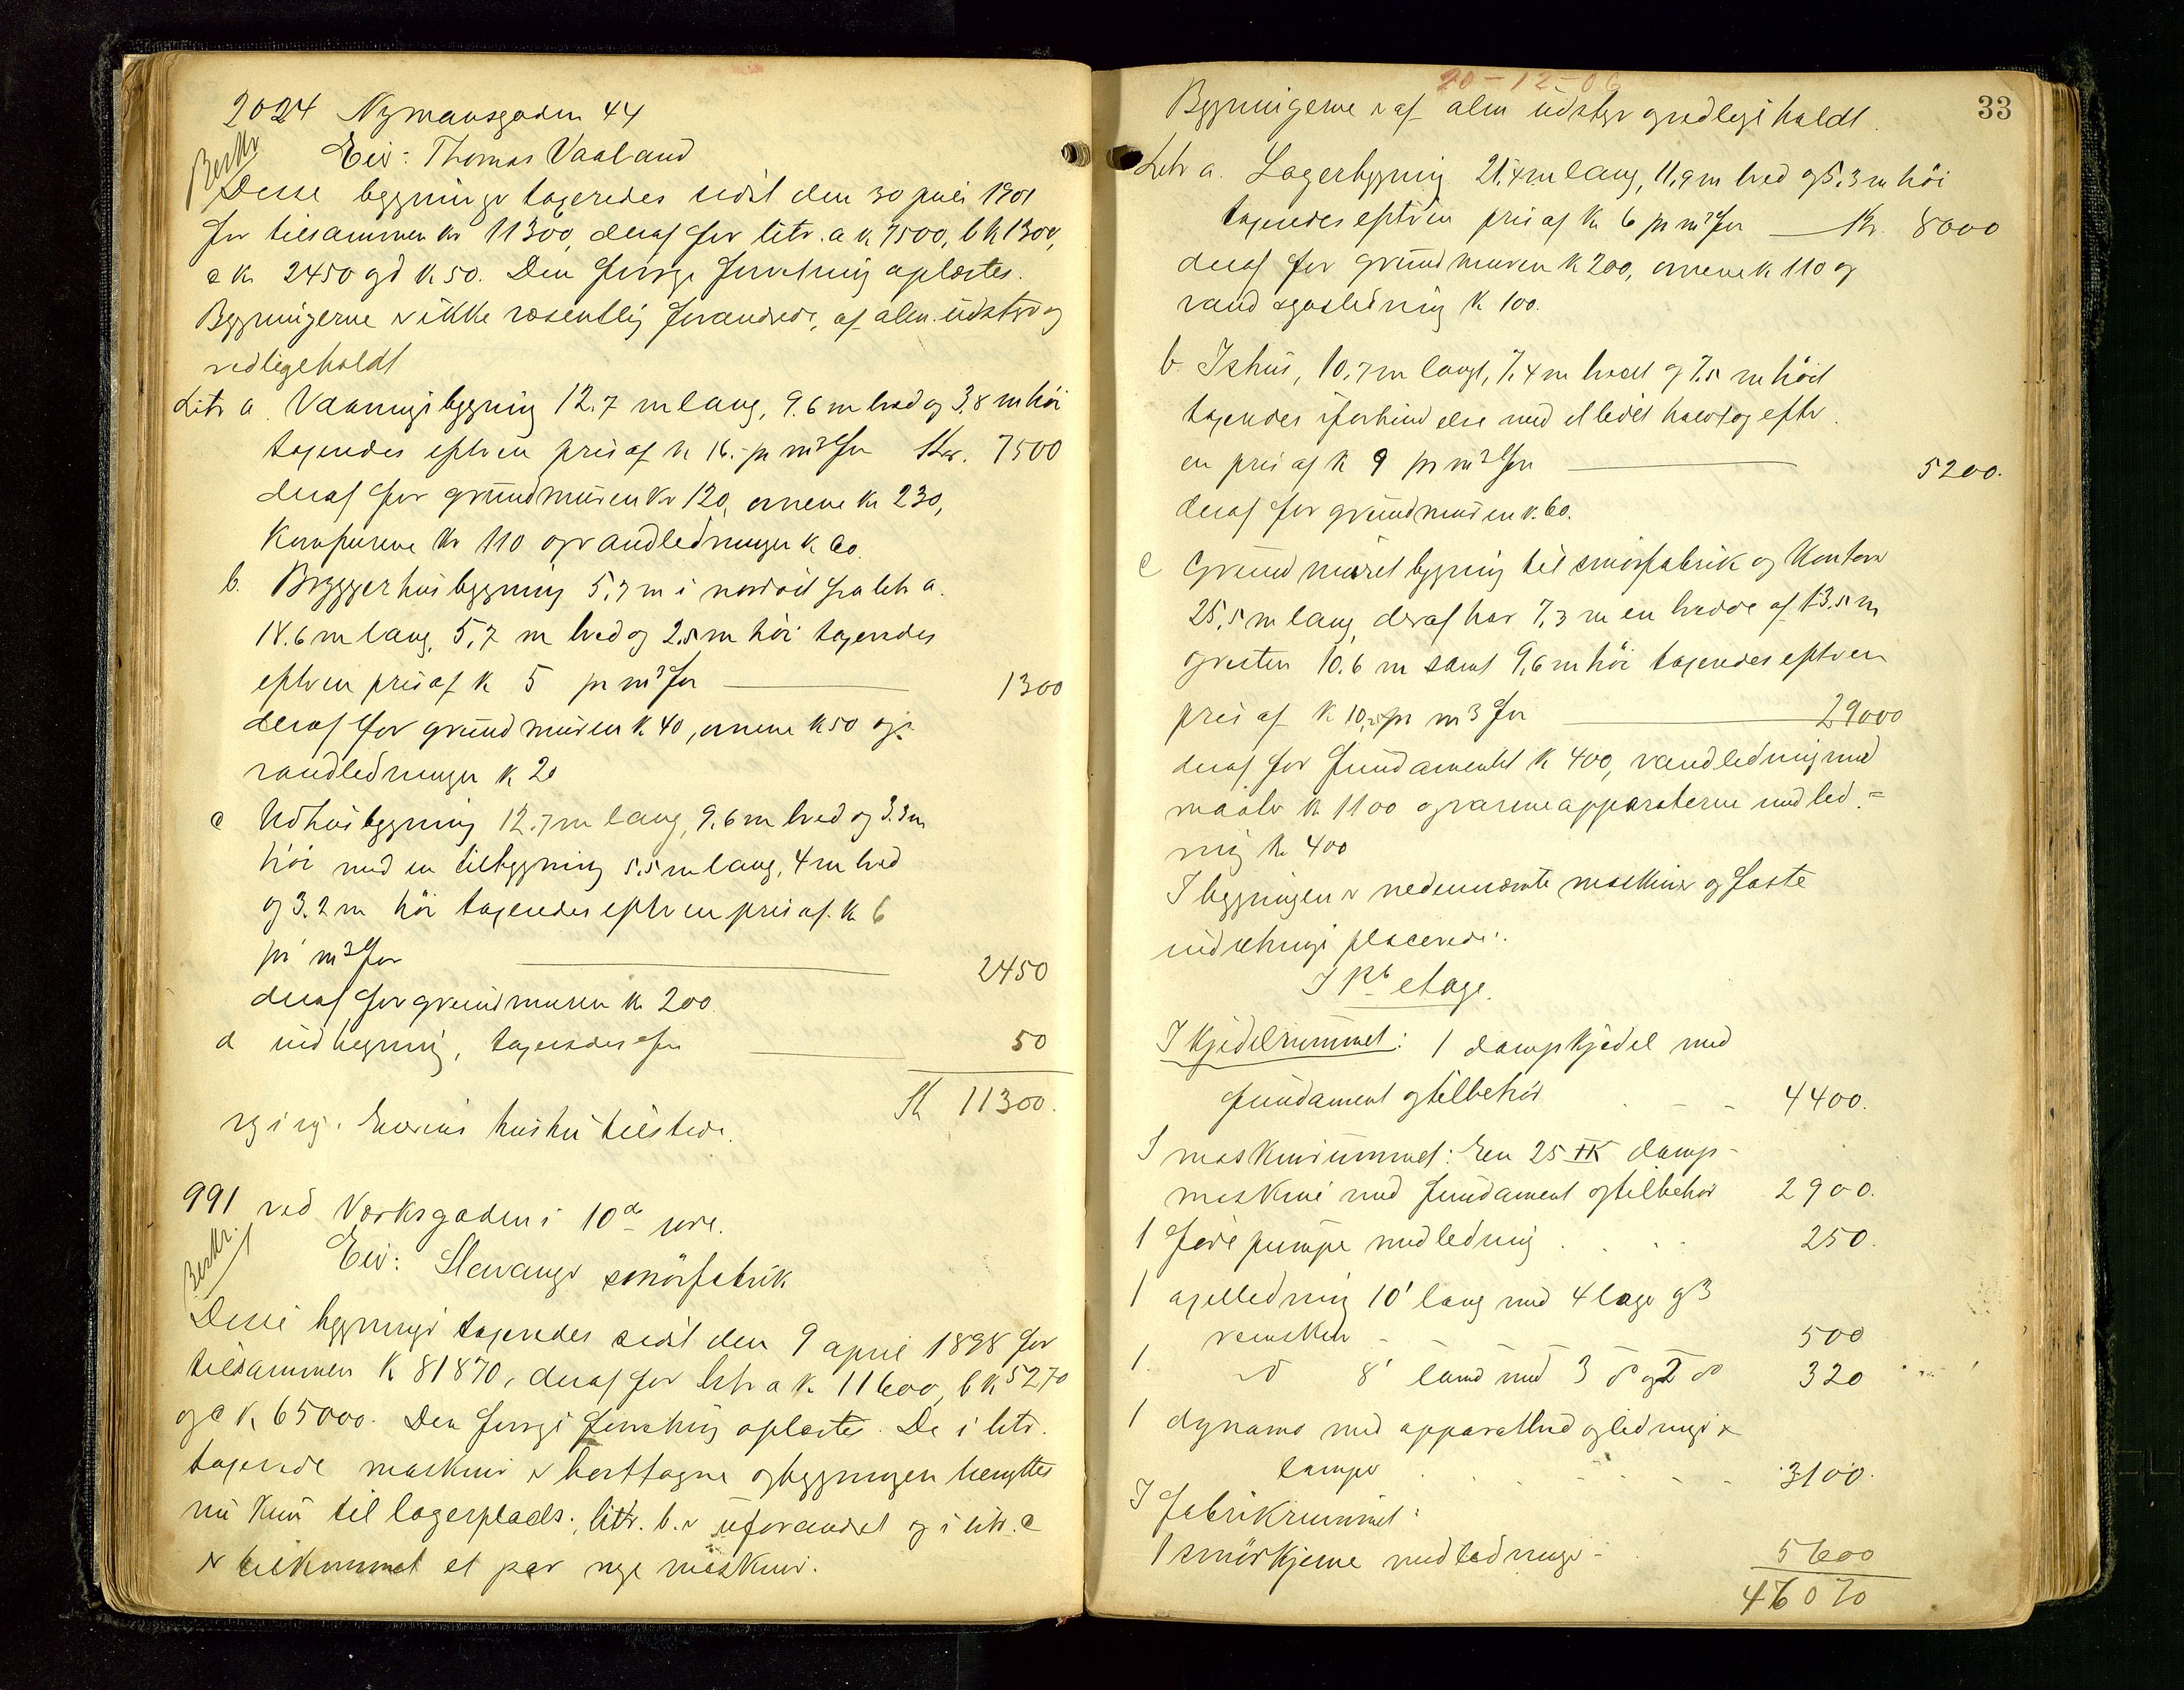 2024 Nymansgaden 44
Beskr
Eier: Thomas Vaaland
Disse bygninger taxeredes sidst den 30 juli 1901
for tilsammen kr 11300, deraf for litr. a k 7500, b k 1300,
c kr 2450 og d k 50. Den forrige forretning oplæstes.
Bygningerne er ikke væsentlig forandrede, af alm. udstyr og
vedligeholdt
Litr a Vaaningsbygning 12.7 m lang, 9.6 m bred og 3,8 m høi
taxeredes efter en pris af k 16.- pr m³ for Kr. 7500
deraf for grundmuren kr 120, ovnene kr 230,
komfurene kr 110 og vandledninger k 60.
b. Bryggerhusbygning 5,7 m i nordøst fra litr a.
18.6 m lang, 5,7 m bred og 2.5 m høi taxeredes
efter en pris af k 5 pr m³ for 1300
deraf for grundmuren k 40, ovnene k 50 og
vandledninger k 20
c Udhusbygning 12.7 m lang, 9.6 m bred og 3.3 m
høi med en tilbygning 5.5 m lang, 4 m bred
og 3.2 m høi taxeredes efter en pris af k 6
pr m³ for 2450
deraf for grundmuren k 200
d indhegning, taxeredes for 50
K 11300.
rg i rg. Eierens hustru tilstede.
991 ved Verksgaden i 10de rode.
Beskr.
Eier: Stavanger smörfabrik
Disse bygninger taxeredes sidst den 9 april 1898 for
tilsammen K 81870, deraf for litr a k 11600, b k 5270
og c k 65000. Den forrige forretning oplæstes. De i litr.
taxerede maskiner er borttagne og bygningen benyttes
nu kun til lagerplads; litr. b. er uforandret og i litr. c
er tilkommet et par nye maskiner.
20-12-06
33
Bygningerne er af alm udstyr og vedligeholdt.
Litr a. Lagerbygning 21,4 m lang, 11,9 m bred og 5,3 m høi
taxeredes efter en pris af K 6 pr m³ for Kr. 8000
deraf for grundmuren K 200, ovnene k 110 og
vand og gasledning K 100.
b. Ishus, 10.7 m langt, 7.4 m bredt og 7.5 m höit
taxeredes i forbindelse med et lidet halvtag efter
en pris af k 9 pr m³ for 5200.
deraf for grundmuren k. 60.
c Grundmuret bygning til smörfabrik og Kontor
25,5 m lang, deraf har 7,3 m en bredde af 13,5 m
og resten 10.6 m samt 9,6 m höi taxeredes efter en
pris af K 10,- pr m3 for 29000
deraf for fundamentet K 400, vandledning med
maaler k 1100 og varmeapparaterne med led=
ning k 400
I bygningen er nedennævnte maskiner og faste
indretninger placerede:
I 1ste etage.
I kjedelrummet: 1 dampkjedel med
fundament og tilbehör 4400.
I maskinrummet: En 25 HK damp-
maskine med fundament og tilbehør 2900.
1 födepumpe med ledning 250.
1 axelledning 10' lang med 4 lager og 3
remskiver 500
1 do 8' land med 3 do og 2 do 320
1 dynamo med apparattavle og ledninger &
lamper 3100.
I fabrikrummet:
1 smörkjerne med ledninger 5600
46070